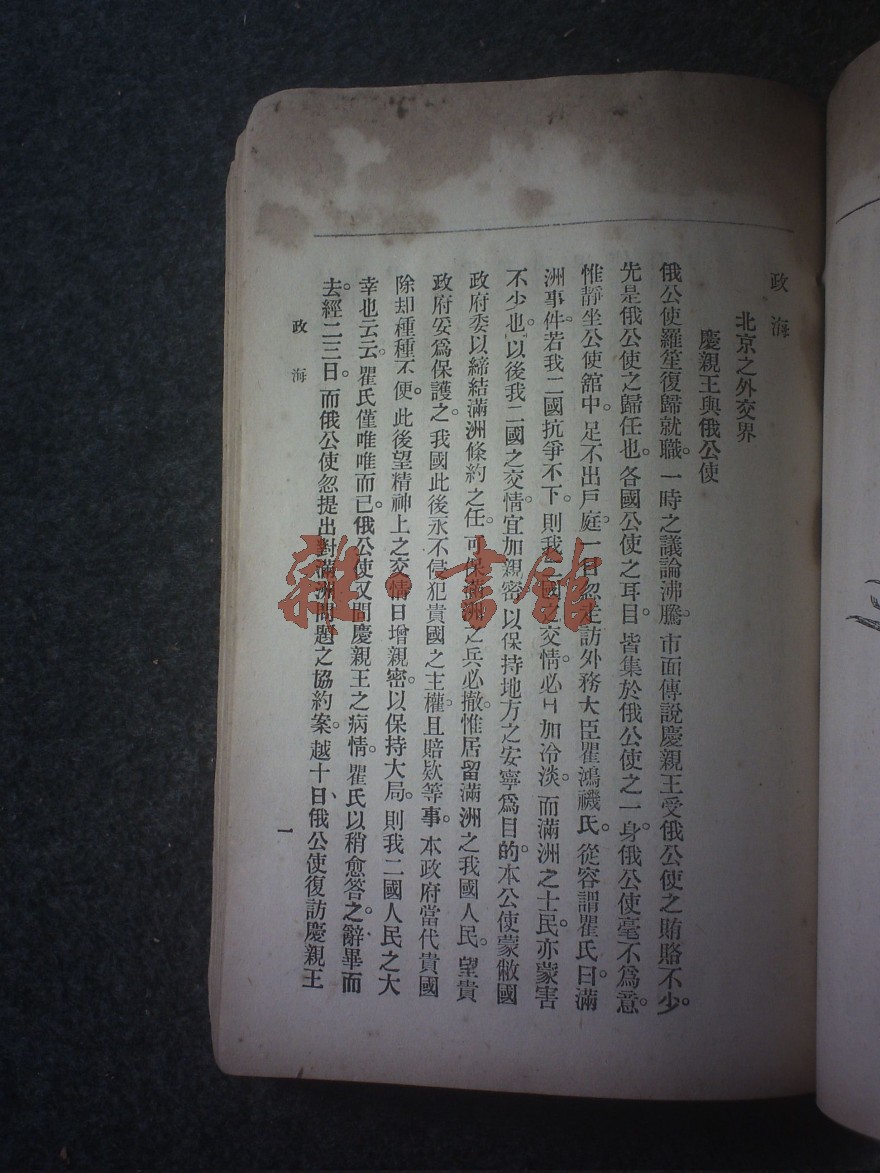 政海
北京之外交界
慶親王與俄公使
俄公使羅笙復歸就職。一時之議論沸騰。市面傳說慶親王受俄公使之賄賂不少。
先是俄公使之歸任也。各國公使之耳目。皆集於俄公使之一身。俄公使毫不爲意。
惟靜坐公使舘中。足不出戶庭。一日忽走訪外務大臣瞿鴻禨氏。從容謂瞿氏曰。滿
洲事件。若我二國抗爭不下。則我二國之交情。必日加冷淡。而滿洲之士民。亦蒙害
不少也。以後我二國之交情。宜加親密。以保持地方之安寧爲目的。本公使蒙敝國
政府委以締結滿洲條約之任。可保滿洲之兵必撤。惟居留滿洲之我國人民。望貴
政府妥爲保護之。我國此後永不侵犯貴國之主權。且賠欵等事。本政府當代貴國
除却種種不便。此後望精神上之交情日增親密。以保持大局。則我二國人民之大
幸也云云。瞿氏僅唯唯而已。俄公使又問慶親王之病情。瞿氏以稍愈答之。辭畢而
去。經二三日。而俄公使忽提出對滿洲問題之協約案。越十日俄公使復訪慶親王
政海
一
雜·書館